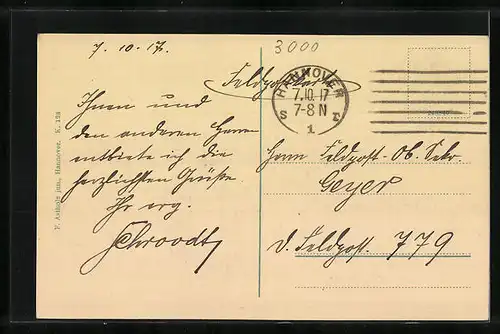 7. 10. 17.
3000
Feldpostkarte
HANNOVER
7.10.17
7-8 N
S
1
Ihnen und
den anderen Herren
entbiete ich die
herzlichsten Grüße.
Ihr erg.
Schroodt
Herrn Feldpost-Ob. Sekr.
Geyer
d. Feldpost. 779
F. Astholz jun., Hannover. K. 128